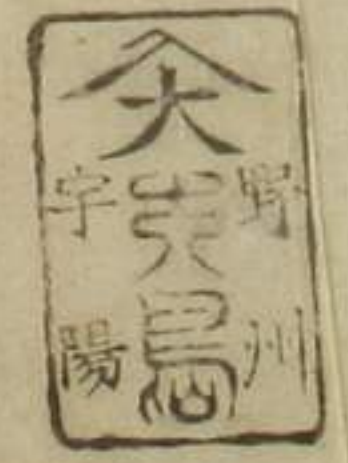 野州
大
宇陽